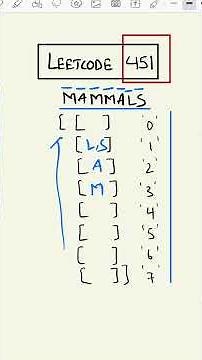 LEETCODE 451
MAMMALS
[ [ ] '0'
[L,S] '1'
[A] '2'
[M] '3'
[ ] '4'
[ ] '5'
[ ] '6'
[ ] ] '7'